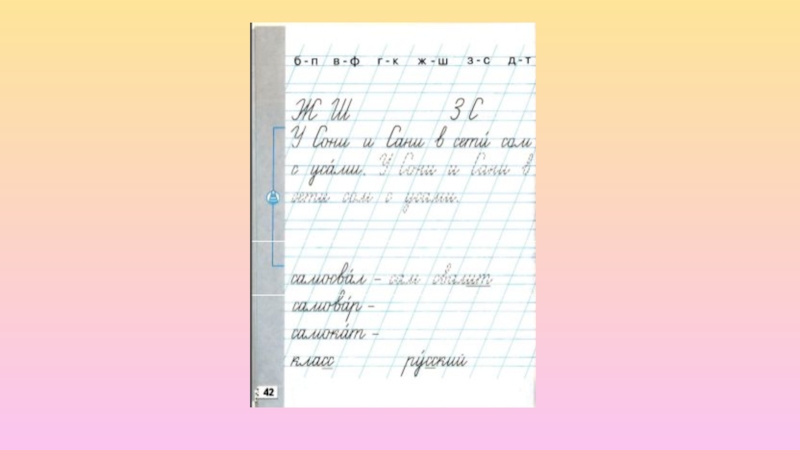 б - п в - ф г - к ж - ш з - с д - т
Ж Ш З С
У Сони и Сани в сети́ сом
с уса́ми. У Сони и Сани в
сети сом с усами.
самосва́л – сам свалит
самова́р –
самока́т –
класс ру́сский
42